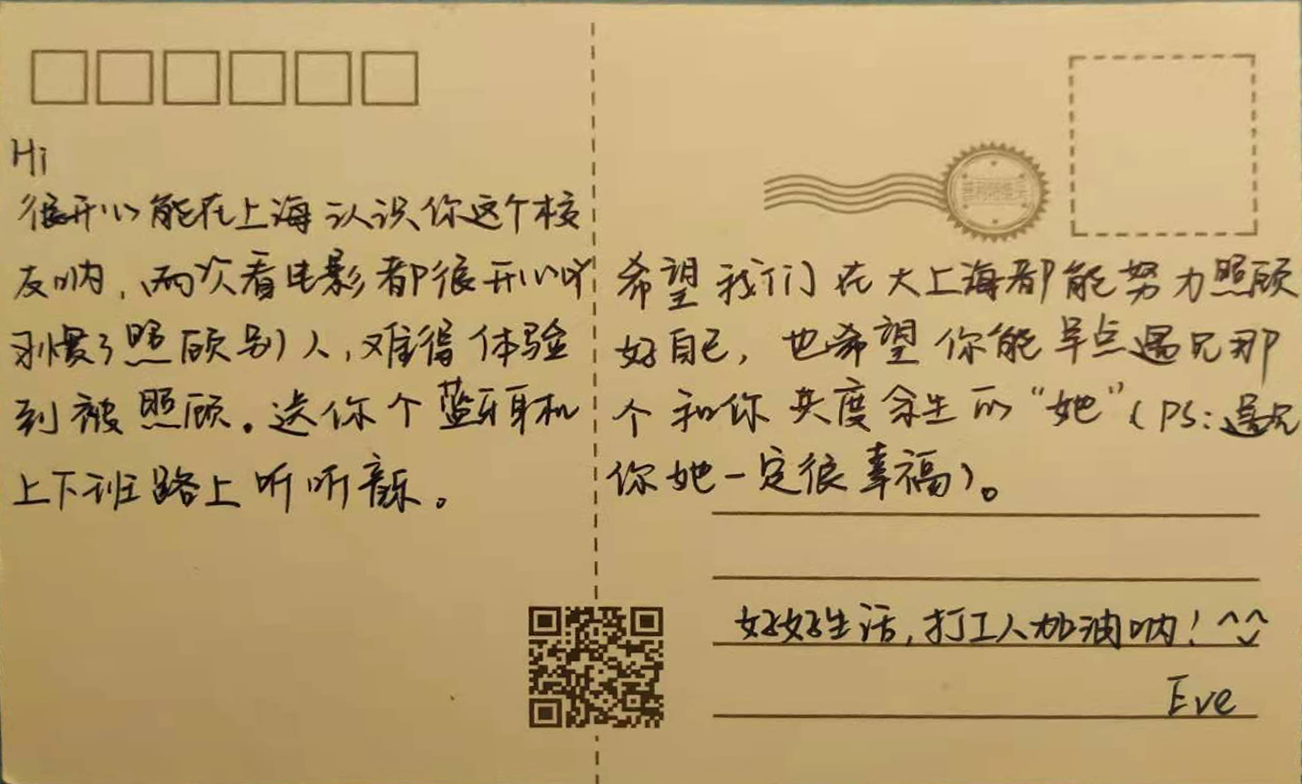 Hi
很开心能在上海认识你这个校
友呐,两次看电影都很开心吖
习惯了照顾别人,难得体验
到被照顾。送你个蓝牙耳机
上下班路上听听音乐。
希望我们在大上海都能努力照顾
好自己,也希望你能早点遇见那
个和你共度余生的“她”(PS:遇见
你她一定很幸福)。
好好生活,打工人加油呐!^^
Eve